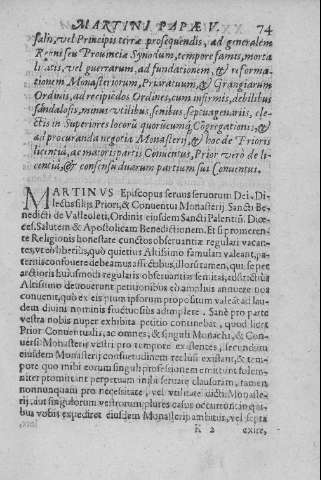 MARTINI PAPÆ V. 74
salis, vel Principis terræ prosequendis, ad generalem
Regni seu Prouinciæ Synodum, tempore famis, morta
litatis, vel guerrarum, ad fundationem, & reforma
tionem Monasteriorum, Prioratuum, & Grangiarum
Ordinis, ad recipiēdos Ordines, cum infirmis, debilibus
scandalosis, minus vtilibus, senibus septuagenarijs, ele
ctis in Superiores locorū quorūcumq; Cōgregationis, &
ad procuranda negotia Monasterij, & hoc de Prioris
licentia, ac maioris partis Conuentus, Prior vero de li
centia, & consensu duarum partium sui Conuentus.
MARTINVS Episcopus seruus seruorum Dei. Di
lectis filijs Priori, & Conuentui Monasterij Sancti Bene
dicti de Valleoleti, Ordinis eiusdem Sancti Palentin. Diœc
ces. Salutem & Apostolicam Benedictionem. Et si promeren
te Religionis honestate cunctos obseruantiæ regulari vacan-
tes, vt eò liberiùs, quò quietius Altissimo famulari valeant, pa-
terna confouere debeamus affectibus, illos tamen, qui sepe
arctioris huiusmodi regularis obseruantiæ semitas,
Altissimo deuouerunt petitionibus eò amplius annuere nos
conuenit, quò ex eis pium ipsorum propositum valeat ad lau-
dem diuini nominis fructuosius adimplere. Sanè pro parte
vestra nobis nuper exhibita petitio continebat, quod licet
Prior Conuentualis, ac omnes, & singuli Monachi, & Con-
uersi Monasterij vestri pro tempore existentes, secundum
eiusdem Monasterij consuetudinem reclusi existant, & tem-
pore quo inibi eorum singuli professionem emittunt solem-
niter promittant perpetuam inibi seruare clausuram, tamen
nonnunquam pro necessitate, vel vtilitate dicti Monaste-
rij, aut singulorum vestrorum, plures casus occurrunt in qui-
bus vobis expediret eiusdem Monasterij ambitus, vel septa
K 2 exire,